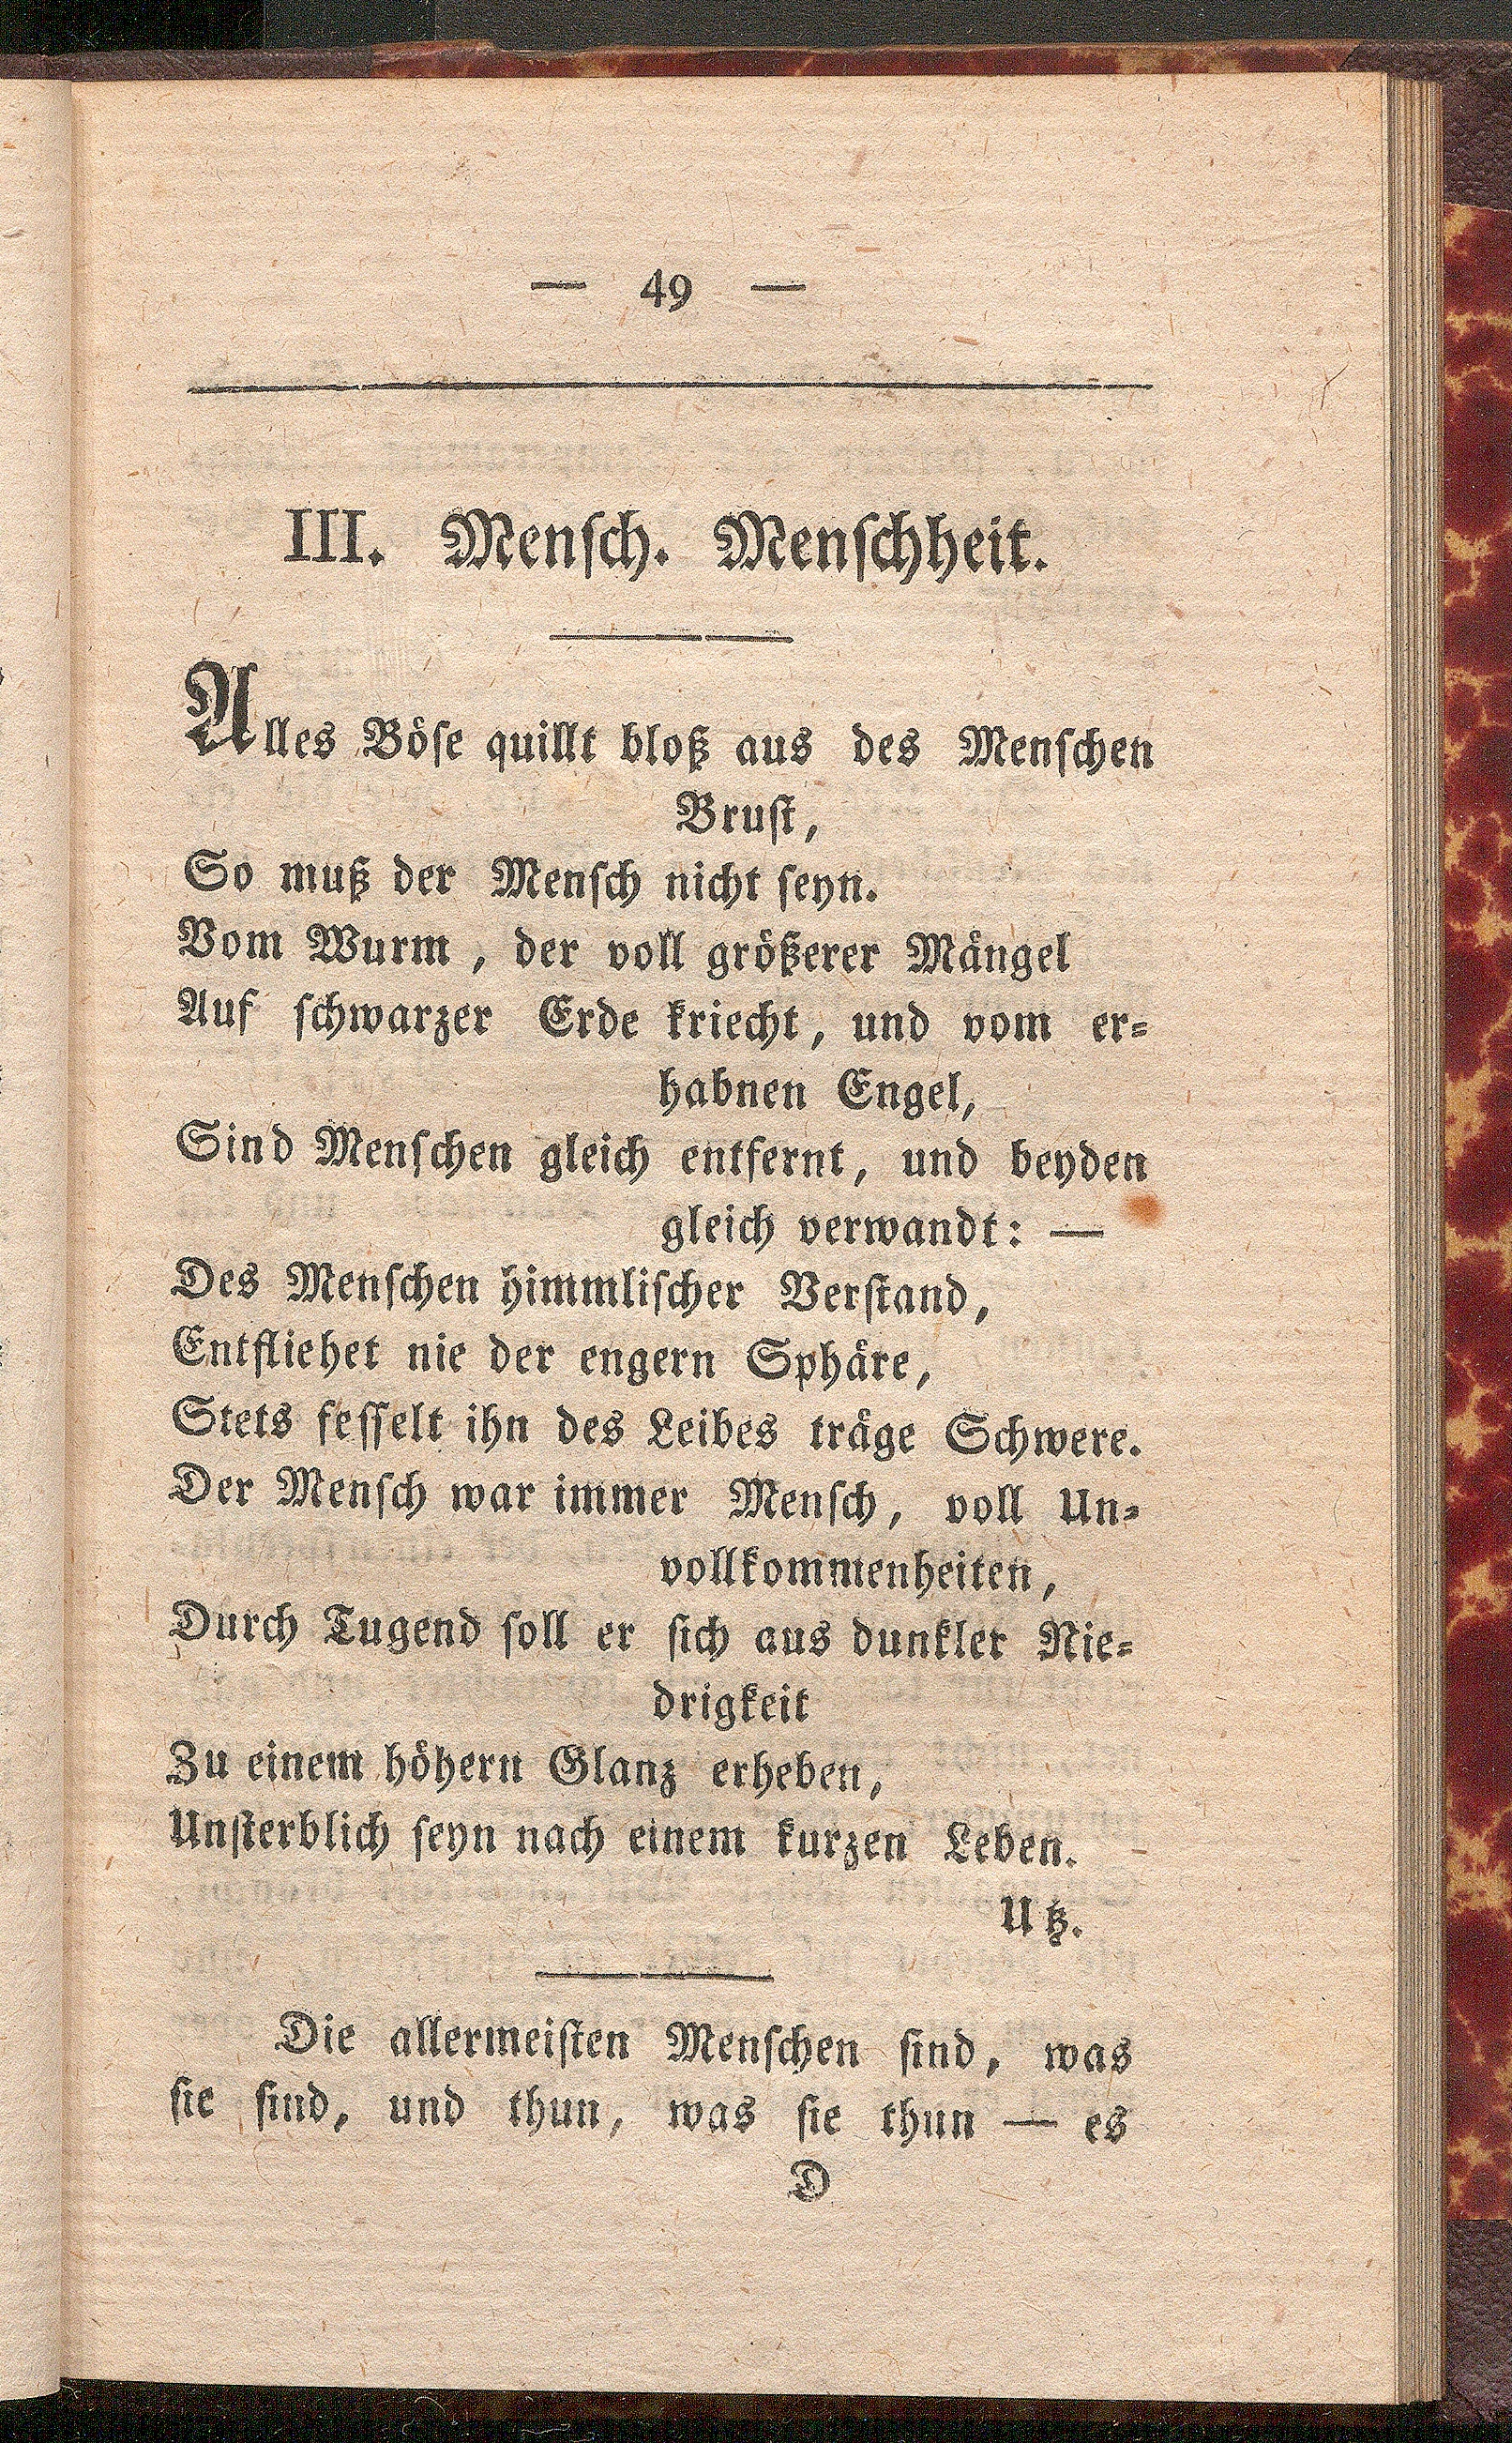 — 49 —
III. Menſch. Menſchheit.
Alles Böſe quillt bloß aus des Menſchen
Bruſt,
So muß der Menſch nicht ſeyn.
Vom Wurm, der voll größerer Mängel
Auf ſchwarzer Erde kriecht, und vom er-
habnen Engel,
Sind Menſchen gleich entfernt, und beyden
gleich verwandt: —
Des Menſchen himmliſcher Verſtand,
Entfliehet nie der engern Sphäre,
Stets feſſelt ihn des Leibes träge Schwere.
Der Menſch war immer Menſch, voll Un-
vollkommenheiten,
Durch Tugend ſoll er ſich aus dunkler Nie-
drigkeit
Zu einem höhern Glanz erheben,
Unſterblich ſeyn nach einem kurzen Leben.
Utz.
Die allermeiſten Menſchen ſind, was
ſie ſind, und thun, was ſie thun — es
D